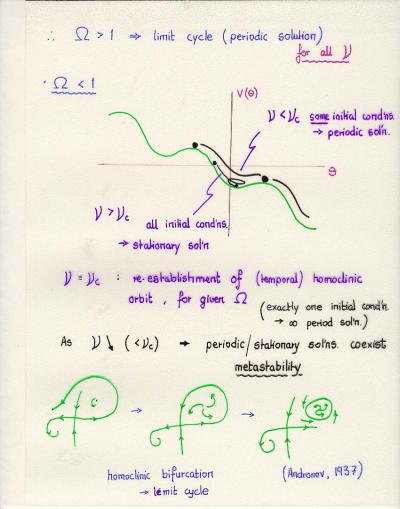 ∴ Ω > 1 ⇒ limit cycle (periodic solution)
for all ν
· Ω < 1
V(θ)
ν < νc some initial cond'ns.
→ periodic sol'n.
θ
ν > νc
all initial cond'ns.
→ stationary sol'n
ν = νc : re-establishment of (temporal) homoclinic
orbit, for given Ω
(exactly one initial cond'n.
→ ∞ period sol'n.)
As ν ↘ (< νc) → periodic/stationary sol'ns. coexist
metastability
→ →
homoclinic bifurcation
→ limit cycle
(Andronov, 1937)